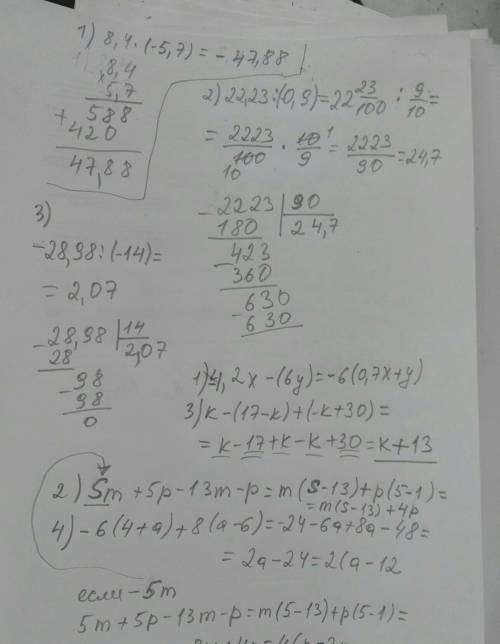 1) 8,4 · (-5,7) = - 47,88
8,4
5,7
588
+ 420
47,88
2) 22,23 : (0,9) = 22 23/100 : 9/10 =
= 2223/100 · 10/9 = 2223/90 = 24,7
10
1
- 2223 | 90
180 | 24,7
- 423
360
- 630
630
3)
-28,98 : (-14) =
= 2,07
- 28,98 | 14
28 | 2,07
- 98
98
0
2x - (6y) = -6(0,7x+y)
3) k - (17-k) + (-k+30) =
= k - 17 + k - k + 30 = k + 13
2) Sm + 5p - 13m - p = m(S-13) + p(5-1) =
= m(S-13) + 4p
4) - 6(4+a) + 8(a-6) = -24 - 6a + 8a - 48 =
= 2a - 24 = 2(a - 12
если - 5m
5m + 5p - 13m - p = m(5-13) + p(5-1) =